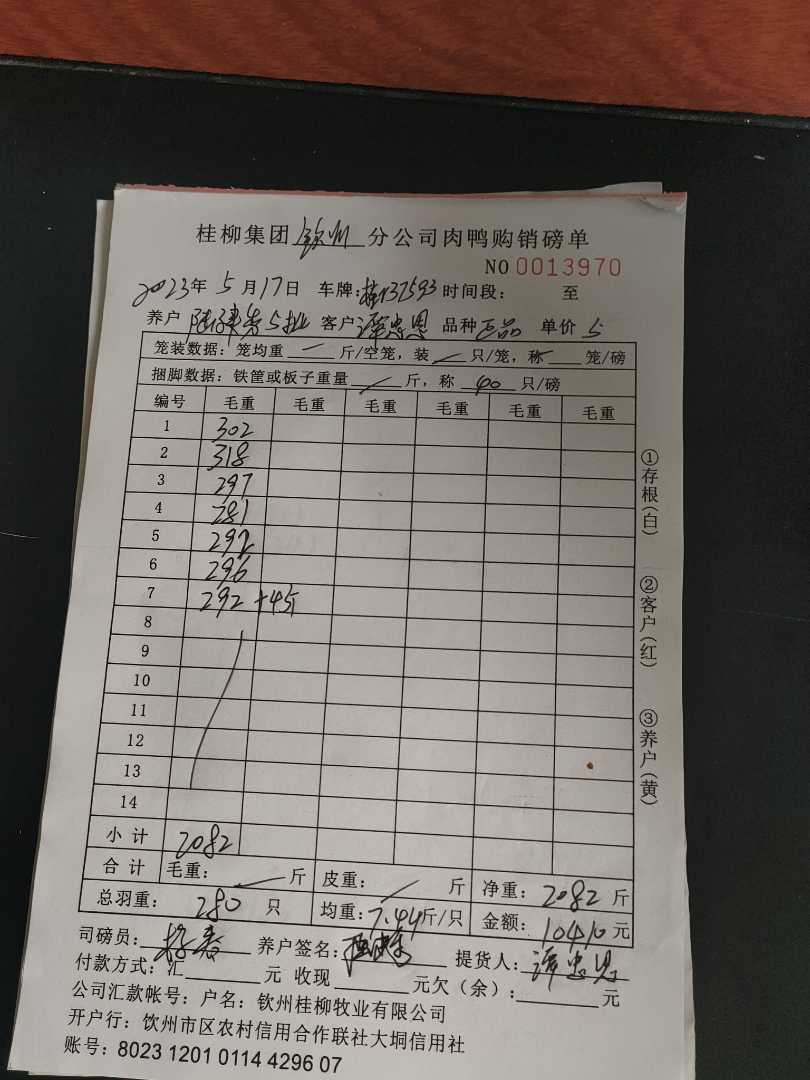 桂柳集团 钦州 分公司肉鸭购销磅单
NO 0013970
2023年 5月17日 车牌: 桂137593 时间段: 至
养户 客户 谭忠恩 品种 正品 单价 5
笼装数据: 笼均重 — 斤/空笼, 装 — 只/笼, 称 — 笼/磅
捆脚数据: 铁筐或板子重量 — 斤, 称 40 只/磅
编号 毛重 毛重 毛重 毛重 毛重 毛重
1 302
2 318
3 297
4 281
5 292
6 296
7 292 +4斤
8
9
10
11
12
13
14
小计 2082
合计 毛重: — 斤 皮重: / 斤 净重: 2082 斤
总羽重: 280 只 均重: 7.44斤/只 金额: 10410元
司磅员: 养户签名: 提货人: 谭忠恩
付款方式: 汇 元 收现 元欠(余): 元
公司汇款帐号: 户名: 钦州桂柳牧业有限公司
开户行: 钦州市区农村信用合作联社大垌信用社
账号: 8023 1201 0114 4296 07
①存根(白)
②客户(红)
③养户(黄)